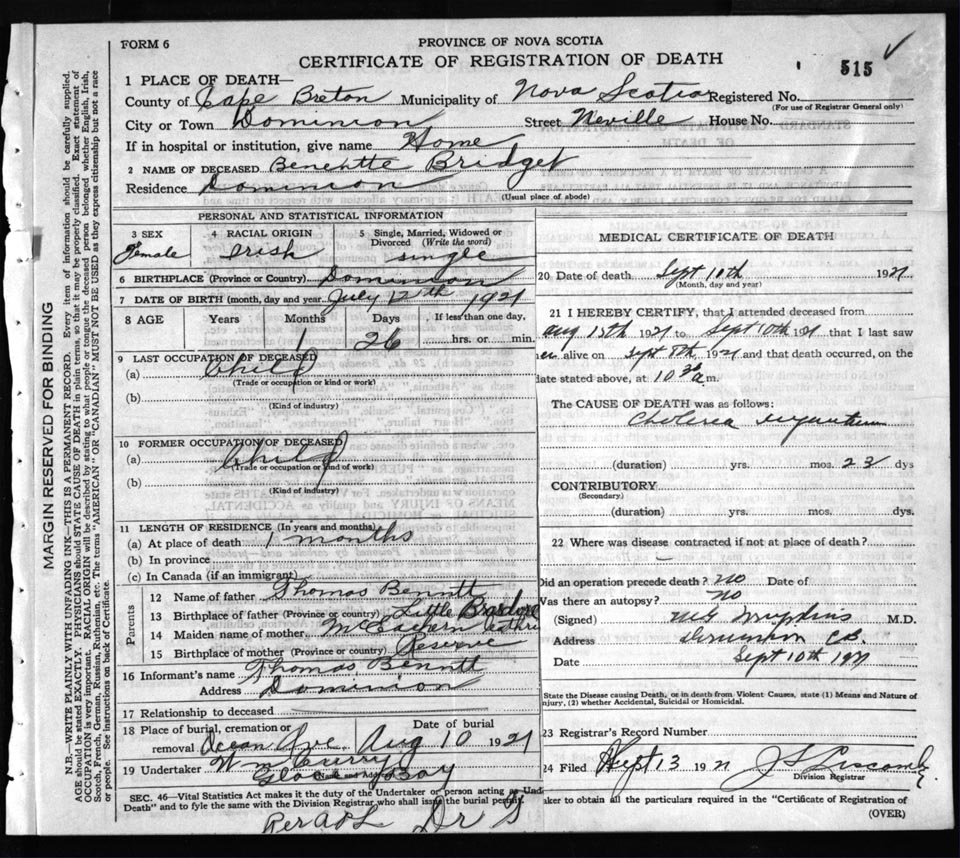 FORM 6
PROVINCE OF NOVA SCOTIA
CERTIFICATE OF REGISTRATION OF DEATH
515
1 PLACE OF DEATH—
County of Cape Breton Municipality of Nova Scotia Registered No.
(For use of Registrar General only)
City or Town Dominion Street Neville House No.
If in hospital or institution, give name Home
2 NAME OF DECEASED Bridget
Residence Dominion
(Usual place of abode)
PERSONAL AND STATISTICAL INFORMATION
3 SEX Female
4 RACIAL ORIGIN Irish
5 Single, Married, Widowed or Divorced (Write the word) single
6 BIRTHPLACE (Province or Country) Dominion
7 DATE OF BIRTH (month, day and year) July 12th 1921
8 AGE Years Months 1 Days 26 If less than one day, hrs. or min.
9 LAST OCCUPATION OF DECEASED
(a) Child
(Trade or occupation or kind or work)
(b)
(Kind of industry)
10 FORMER OCCUPATION OF DECEASED
(a) Child
(Trade or occupation or kind of work)
(b)
(Kind of industry)
11 LENGTH OF RESIDENCE (In years and months)
(a) At place of death 1 months
(b) In province
(c) In Canada (if an immigrant)
Parents
12 Name of father Thomas
13 Birthplace of father (Province or country) Little
14 Maiden name of mother
15 Birthplace of mother (Province or country) Reserve
16 Informant's name Thomas
Address Dominion
17 Relationship to deceased
18 Place of burial, cremation or removal Ocean Ave. Date of burial Aug 10 1921
19 Undertaker Wm Curry
(Name and Address) Glace Bay
SEC. 46—Vital Statistics Act makes it the duty of the Undertaker or person acting as Und
Death" and to fyle the same with the Division Registrar who shall issue the burial permit.
MEDICAL CERTIFICATE OF DEATH
20 Date of death Sept 10th 1921
(Month, day and year)
21 I HEREBY CERTIFY, that I attended deceased from
Aug 15th 1921 to Sept 10th 1921 that I last saw
alive on Sept 8th 1921 and that death occurred, on the
date stated above, at 10 30 a.m.
The CAUSE OF DEATH was as follows:
Cholera
(duration) yrs. mos. 23 dys
CONTRIBUTORY
(Secondary.)
(duration) yrs. mos. dys.
22 Where was disease contracted if not at place of death?
Did an operation precede death? no Date of
Was there an autopsy? no
(Signed) M.D.
Address Dominion C.B.
Date Sept 10th 1921
State the Disease causing Death, or in death from Violent Causes, state (1) Means and Nature of
njury, (2) whether Accidental, Suicidal or Homicidal.
23 Registrar's Record Number
24 Filed Sept 13 1921
Division Registrar
taker to obtain all the particulars required in the "Certificate of Registration of
(OVER)
MARGIN RESERVED FOR BINDING
N.B.—WRITE PLAINLY WITH UNFADING INK—THIS IS A PERMANENT RECORD. Every item of information should be carefully supplied.
AGE should be stated EXACTLY. PHYSICIANS should STATE CAUSE OF DEATH in plain terms, so that it may be properly classified. Exact statement of
OCCUPATION is very important. RACIAL ORIGIN will be described by stating to what people or tongue the deceased person belonged, whether English, Irish,
Scotch, French, German, Russian, Ruthenian, etc. The terms "AMERICAN" OR "CANADIAN" MUST NOT BE USED as they express citizenship but not a race
or people. See instructions on back of Certificate.